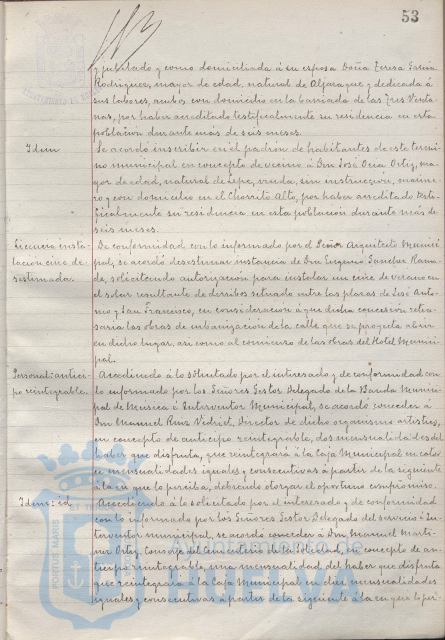 53
y jubilado y como domiciliada á su esposa Doña Teresa García
Rodríguez, mayor de edad, natural de Aljaraque y dedicada á
sus labores, ambos con domicilio en la barriada de las Tres Venta-
nas, por haber acreditado testificalmente su residencia en esta
población durante más de seis meses.
Idem
Se acordó inscribir en el padrón de habitantes de este término
municipal en concepto de vecino á Don José Oria Ortiz, ma-
yor de edad, natural de Lepe, viudo, sin instrucción, marine-
ro y con domicilio en el Chorrito Alto, por haber acreditado testi-
ficalmente su residencia en esta población durante más de
seis meses.
insta-
lación cine de-
sestimada.
De conformidad con lo informado por el Señor Arquitecto Munici-
pal, se acordó desestimar instancia de Don Eugenio Sanchez
solicitando autorización para instalar un cine de verano en
el solar resultante de derribos situado entre las plazas de José Anto-
nio y San Francisco, en consideración a que dicha concesión retra-
saría las obras de urbanización de la calle que se proyecta abrir
en dicho lugar, así como al comienzo de las obras del Hotel Munici-
pal.
Personal: antici-
po reintegrable.
Accediendo á lo solicitado por el interesado y de conformidad con
lo informado por los Señores Gestor Delegado de la Banda Munici-
pal de Música é Interventor Municipal, se acordó conceder á
Don Manuel Director de dicho organismo artístico,
en concepto de anticipo reintegrable, dos mensualidades del
haber que disfruta, que reintegrará á la Caja Municipal en cator-
ce mensualidades iguales y consecutivas á partir de la siguiente
á la en que lo perciba, debiendo otorgar el oportuno compromiso.
Idem: id.
Accediendo á lo solicitado por el interesado y de conformidad
con lo informado por los Señores Gestor Delegado del servicio é In-
terventor municipal, se acordó conceder a Don Manuel Martí-
nez Ortiz, Conserje del Cementerio de la Soledad, en concepto de an-
ticipo reintegrable, una mensualidad del haber que disfruta
que reintegrará á la Caja Municipal en diez mensualidades
iguales y consecutivas á partir de la siguiente á la en que lo per-
PORTUS MARIS